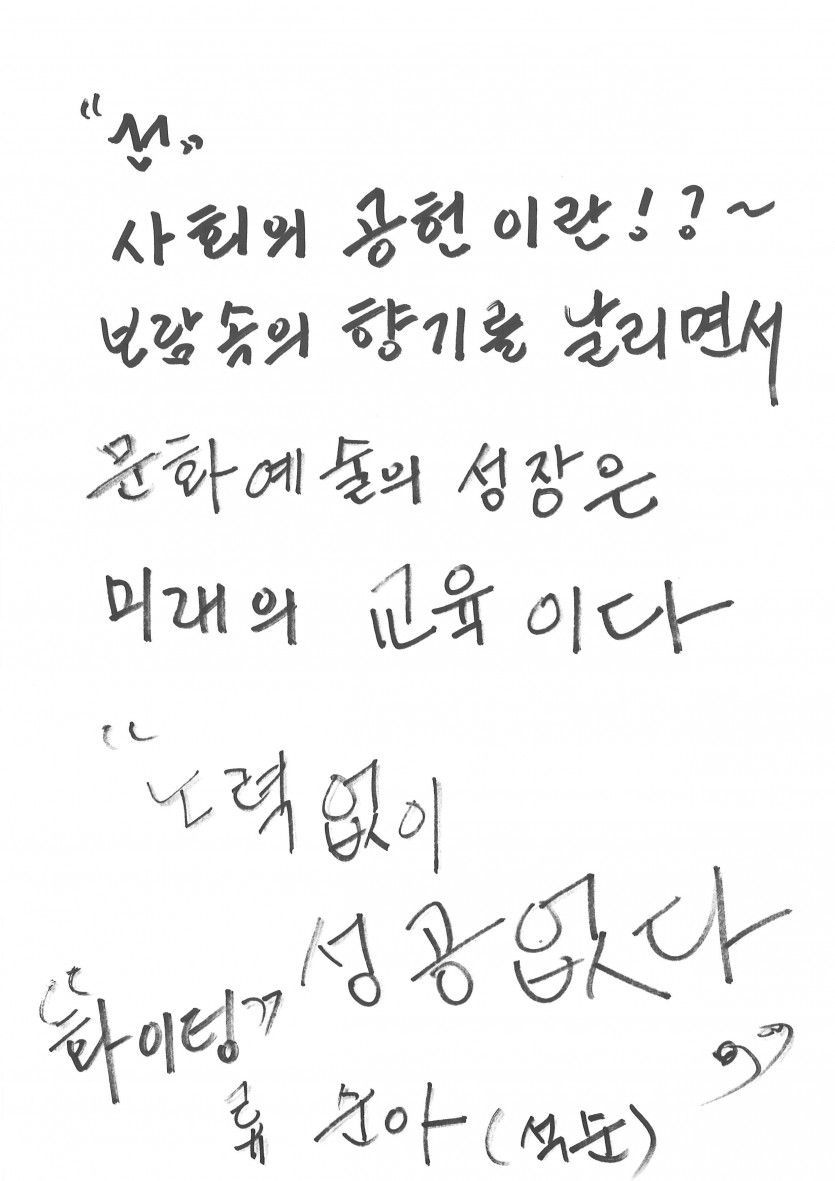 "선"
사회의 공헌이란!?~
보람속의 향기를 날리면서
문화예술의 성장은
미래의 교육이다
"노력없이
성공없다"
"화이팅"
류 순아(석순)